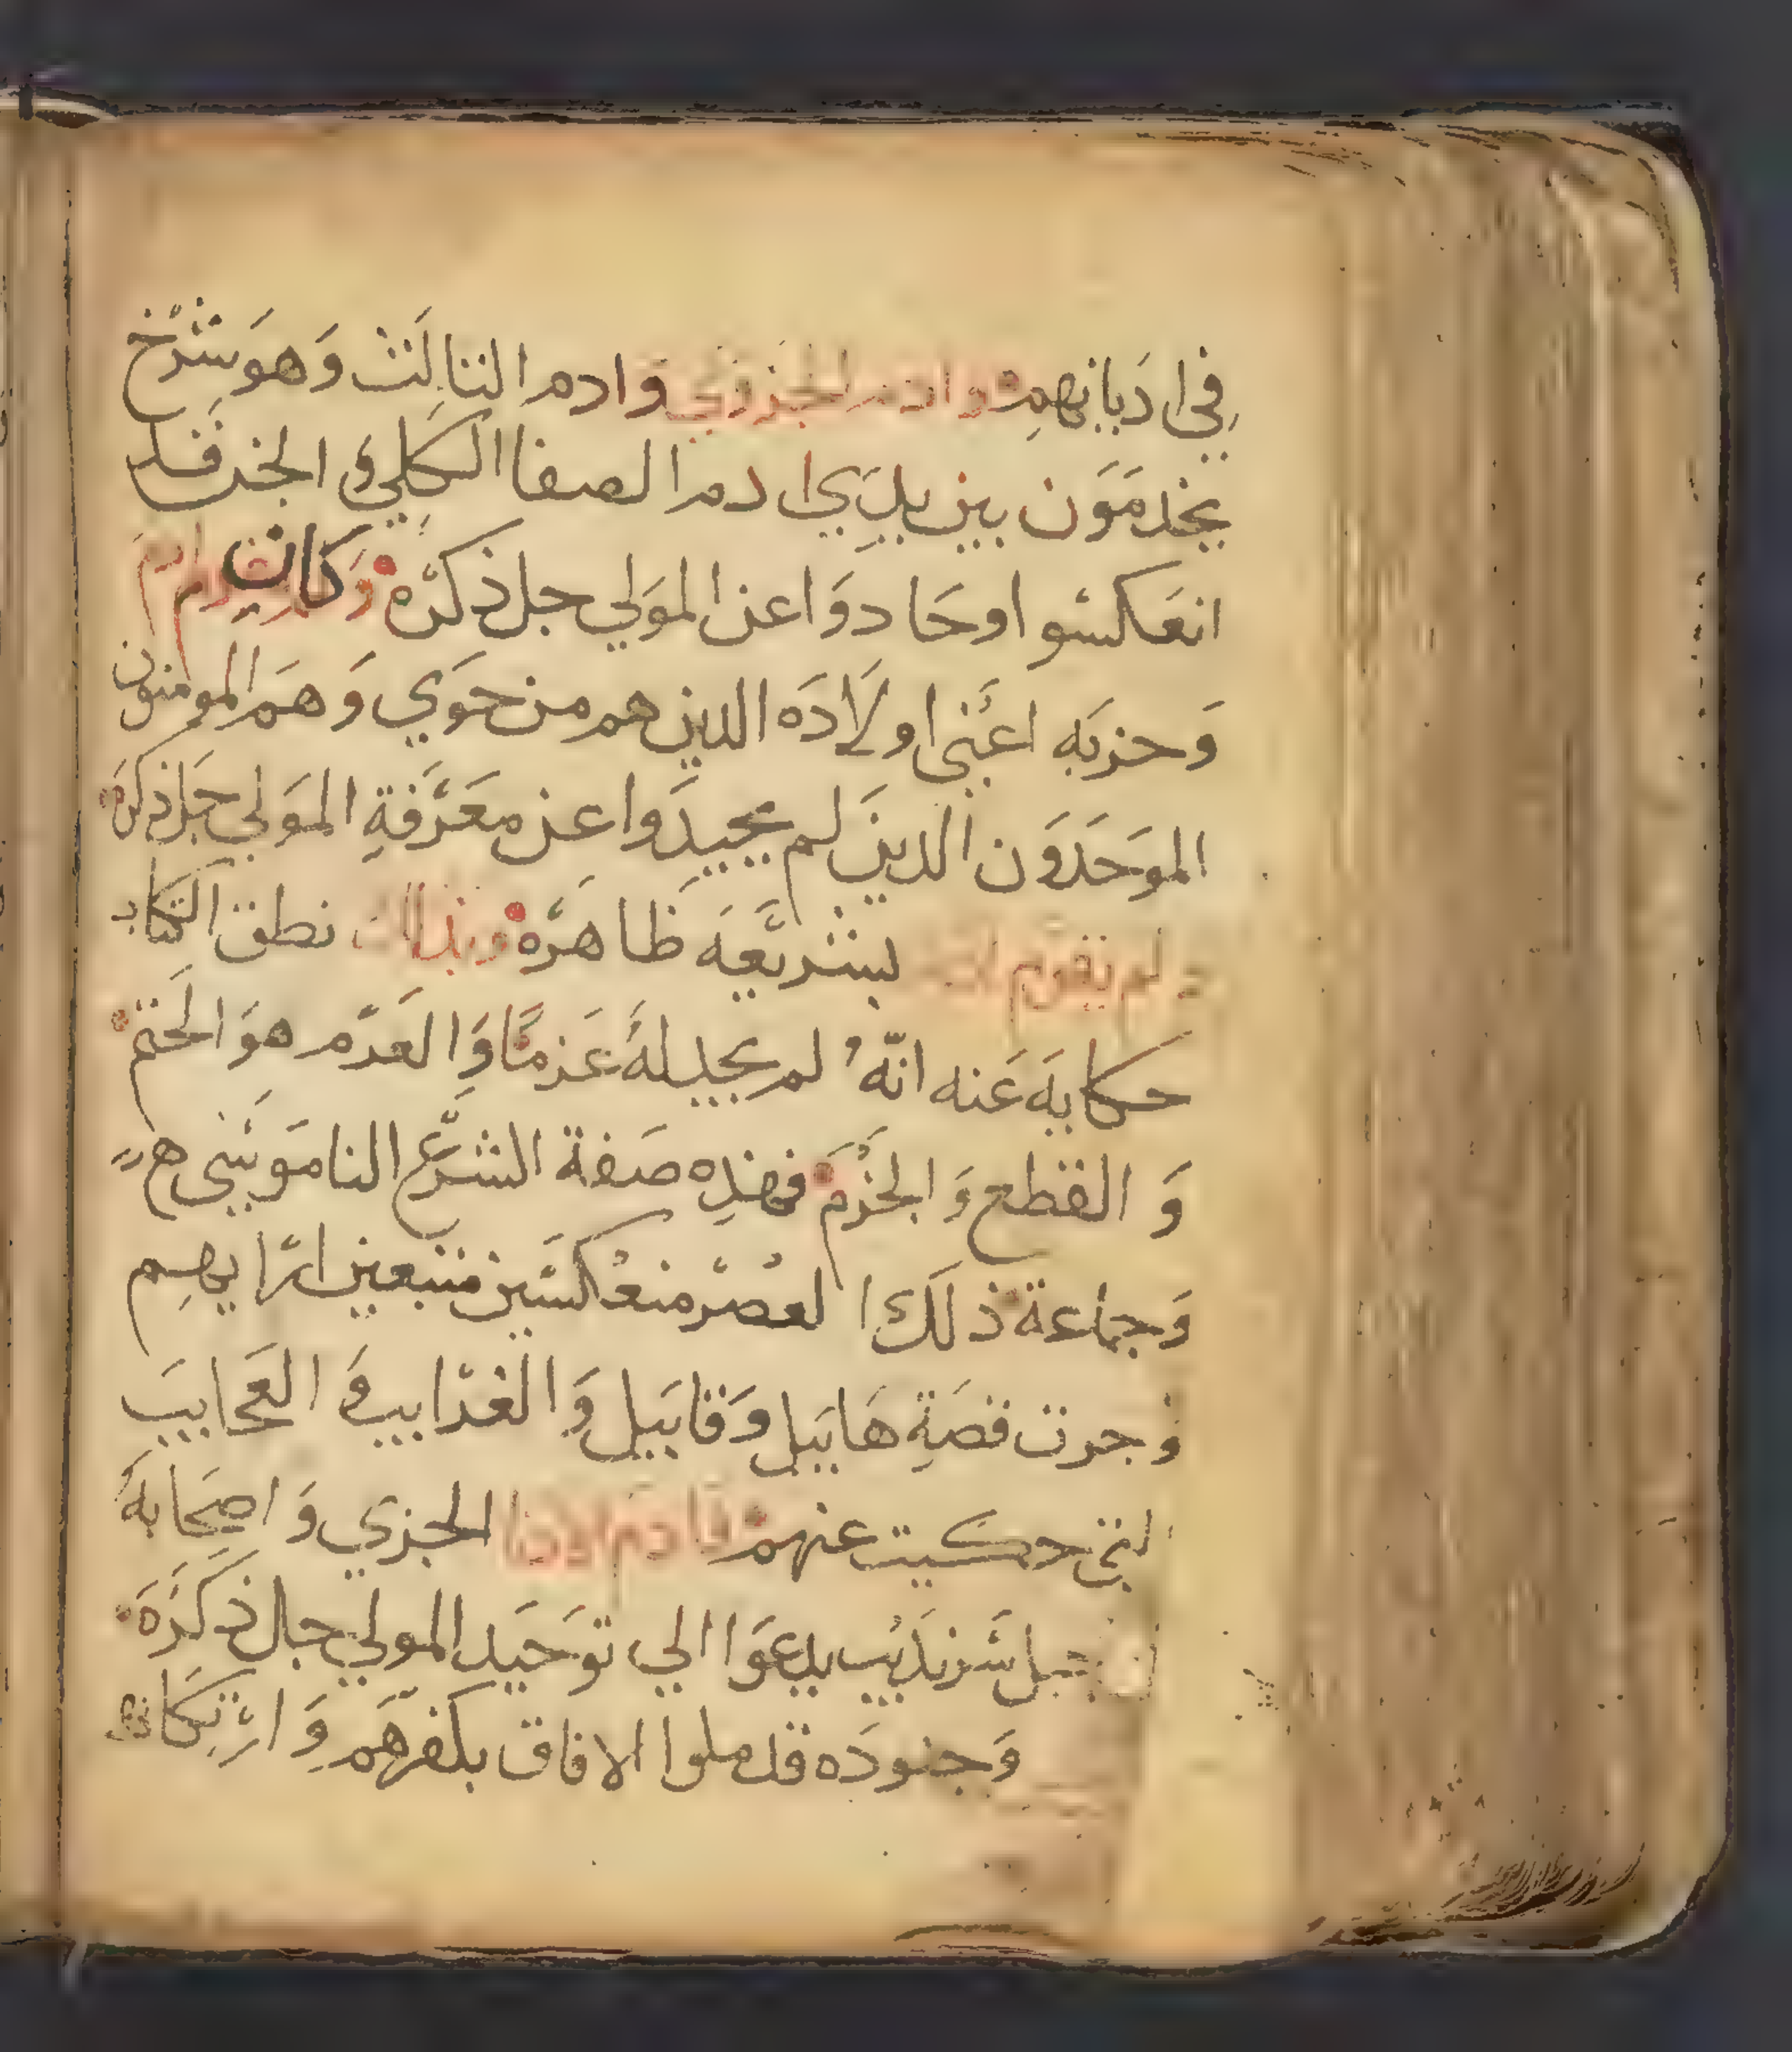 في اديانهم وادم الجزوي وادم الثالث وهو شرخ
يخدمون بين يدي ادم الصفا الكلي والجن قد
انعكسوا وحادوا عن المولي جل ذكره وكان ادم
وحزبه اعني اولاده الدين هم من حوي وهم المومنون
الموحدون الدين لم يحيدوا عن معرفة المولي جل ذكره
ولم يقوم بشريعه ظاهره وبذلك نطق الكتاب
حكايه عنه انه لم يجد له عزما والعدم هو الحتم
و القطع والجزم فهذه صفة الشرع الناموسي
وجماعة ذلك العصر منعكسين متبعين ارايهم
وجرت قصة هابيل وقابيل والغرايب والعجايب
التي حكيت عنهم فادم الجزي واصحابه
جبل سرنديب يدعوا الي توحيد المولي جل ذكره
وجنوده قد ملوا الافاق بكفرهم